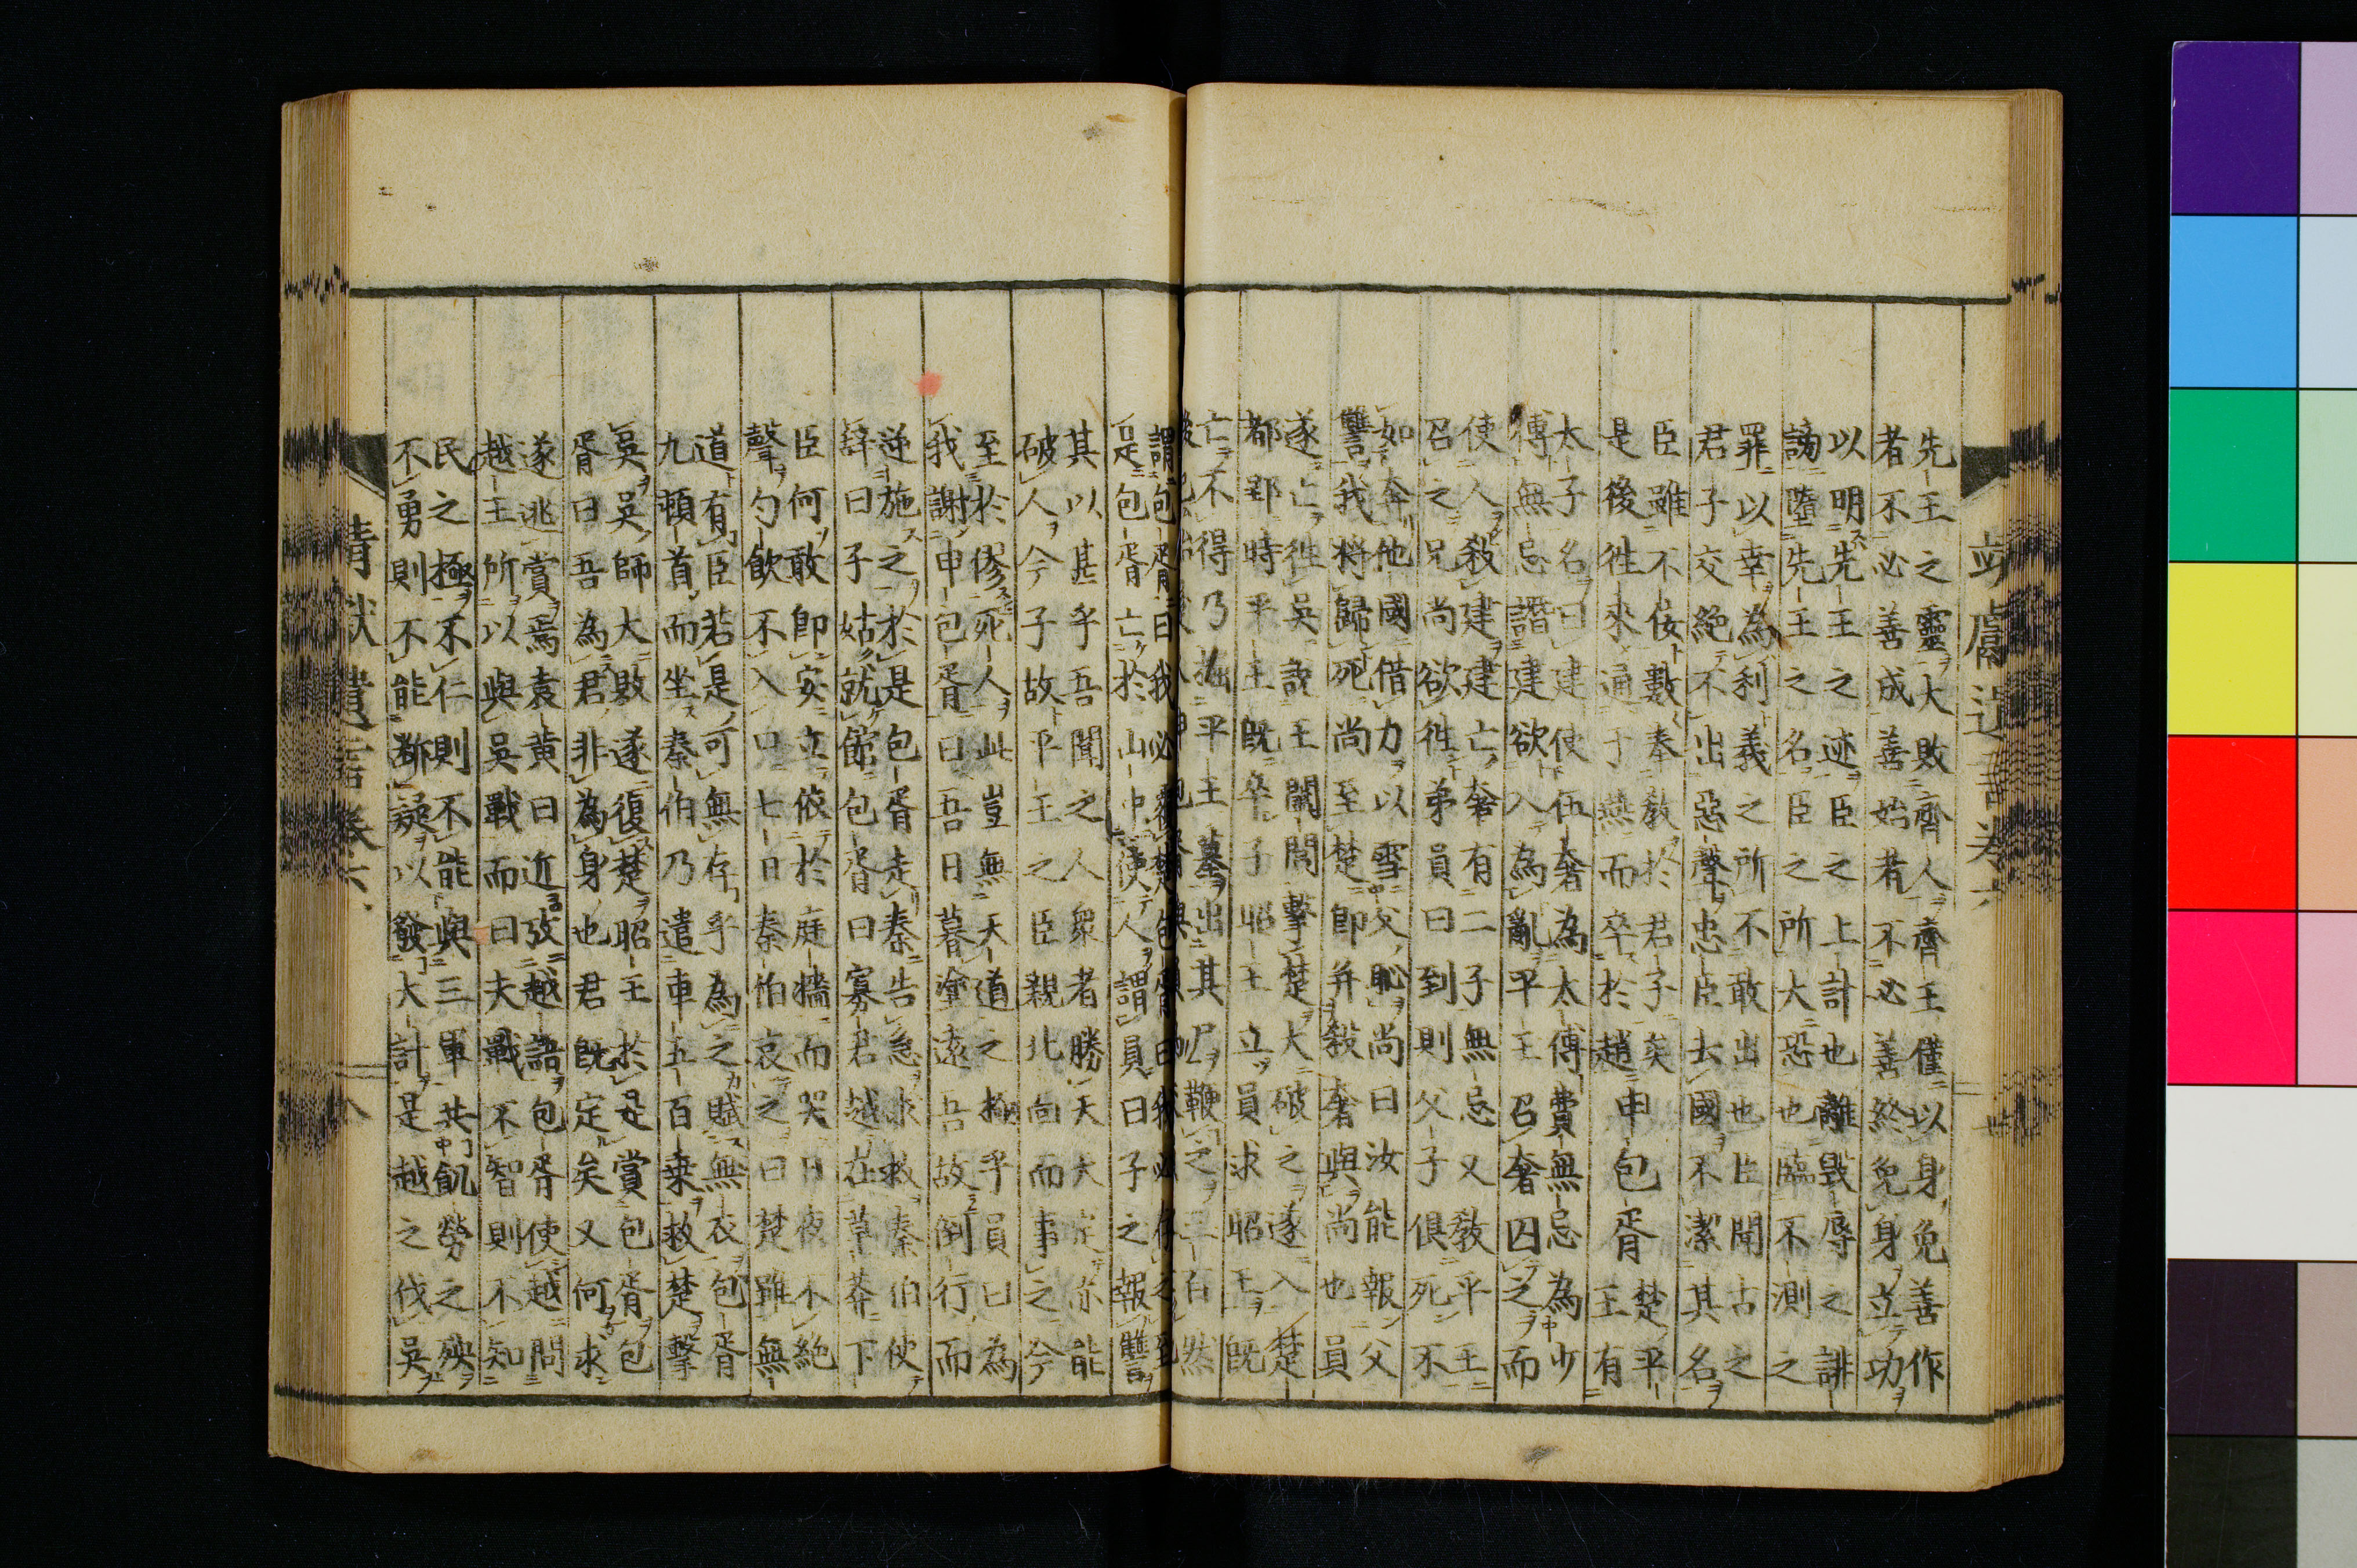 靖献遺言巻六
先王之靈大敗齊人齊王僅以身免善作
者不必善成善始者不必善終免身立功
以明先王之迹臣之上計也離毀辱之誹
謗墮先王之名臣之所大恐也臨不測之
罪以幸為利義之所不敢出也臣聞古之
君子交絶不出惡聲忠臣去國不潔其名
臣雖不佞數奉敎於君子矣
是後徃來通于燕而卒於趙
申包胥
楚平
王有
太子名曰建使伍奢為太傅費無忌為少
傅無忌譖建欲入為亂平王召奢囚之而
使人殺建建亡奢有二子無忌又敎平王
召之兄尚欲徃弟員曰到則父子俱死不
如奔他國借力以雪父恥尚曰汝能報父
讐我將歸死尚至楚即并殺奢與尚也員
遂亡徃吳說王闔閭擊楚大破之遂入楚
都郢時平王既卒子昭王立員求昭王既
亡不得乃掘平王墓出其尸鞭之三百然
謂包胥曰我必覆楚包胥曰我必存之至
是包胥亡於山中使人謂員曰子之報讐
其以甚乎吾聞之人衆者勝天天定亦能
破人今子故平王之臣親北面而事之今
至於僇死人此豈無天道之極乎員曰為
我謝申包胥曰吾日暮塗遠吾故倒行而
逆施之於是包胥走秦告急求救秦伯使
辭曰子姑就館包胥曰寡君越在草莽下
臣何敢即安立依於庭墻而哭日夜不絶
聲勺飲不入口七日秦伯哀之曰楚雖無
道有臣若是可無存乎為之賦無衣包胥
九頓首而坐秦伯乃遣車五百乗救楚擊
吳吳師大敗遂復楚昭王於是賞包胥包
胥曰吾為君非為身也君既定矣又何求
遂逃賞焉袁黄曰近攷越語包胥使越問
越王所以與吳戰而曰夫戰不智則不知
民之極不仁則不能與三軍共飢勞之殃
不勇則不能斷疑以發大計是越之伐吳
靖献遺言巻六
八